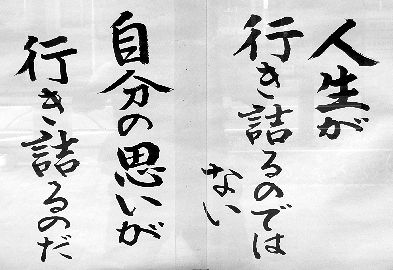 人生が
行き詰るのでは
ない
自分の思いが
行き詰るのだ